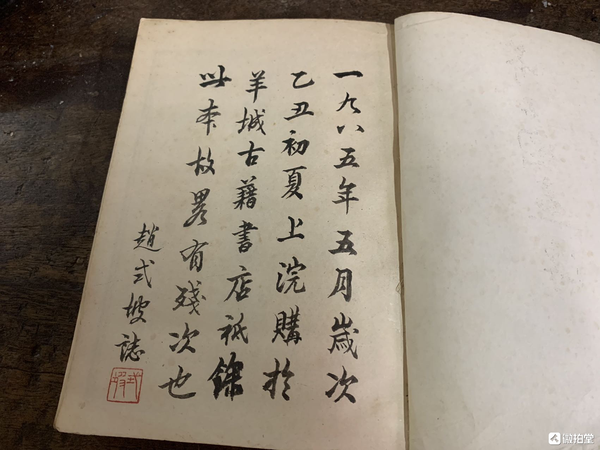 一九八五年五月歲次
乙丑初夏上浣購於
羊城古藉書店祗餘
此本故畧有殘次也
趙式坡誌
式坡
微拍堂